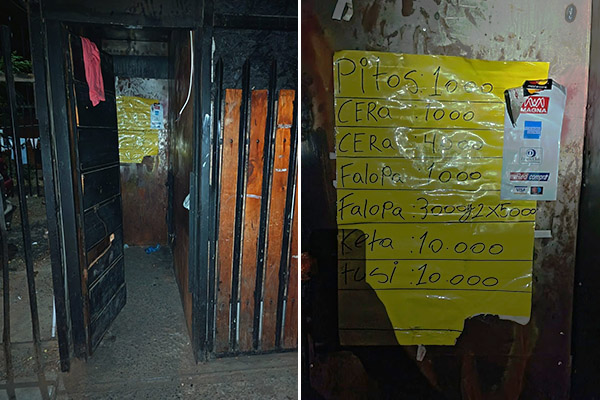 Pitos: 1000
CERA : 1000
CERA : 4.000
Falopa: 1000
Falopa: 3000g2x5000
Keta : 10.000
tusi : 10.000
MAGNA
VISA